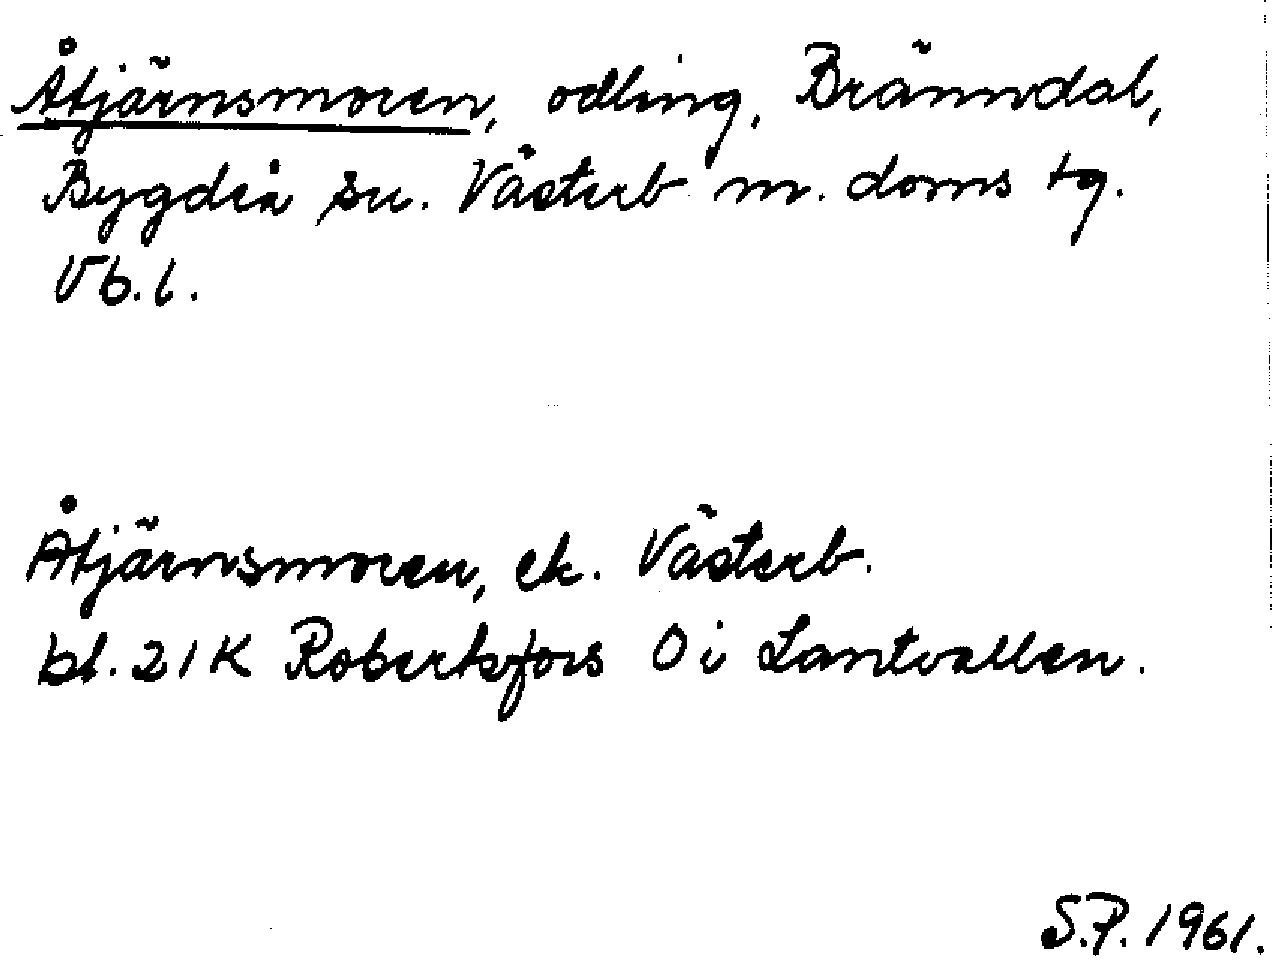 Åtjärnsmoren, odling, Bränndal,
Bygdeå sn. Västerb m. doms tg.
Vb. l.
Åtjärnsmoren, ek. Västerb.
bl. 21K Robertsfors O i Lantvallen.
S.P. 1961.